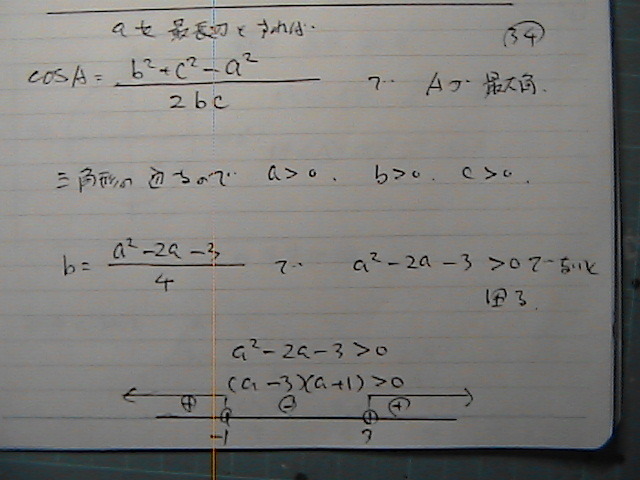 aを最長辺とすれば
(34)
cosA = (b²+c²-a²)/(2bc) で Aが最大角.
三角形の辺なので a>0. b>0. c>0.
b = (a²-2a-3)/4 で a²-2a-3 >0でないと
困る.
a²-2a-3>0
(a-3)(a+1)>0
⊕ ⊖ ⊕
-1 3